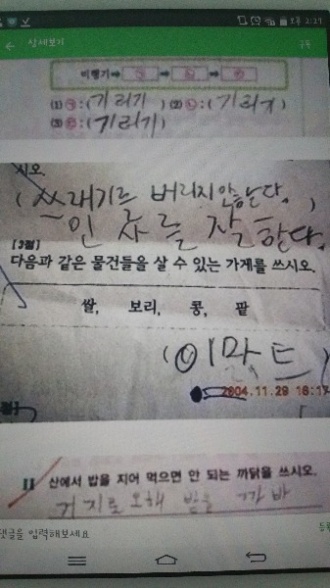 오후 2:27
← 상세보기
비행기→ ㉠ → ㉡ → ㉢
(1) ㉠:(기러기) (2) ㉡:(기러기)
(3) ㉢:(기러기)
시오.
(쓰래기를 버리지안는다.)
인사를 잘한다.
[3점]
다음과 같은 물건들을 살 수 있는 가게를 쓰시오.
쌀, 보리, 콩, 팥
(이마트)
2004.11.29 16:17
11 산에서 밥을 지어 먹으면 안 되는 까닭을 쓰시오.
거지로 오해 받을 까바
댓글을 입력해보세요
등록